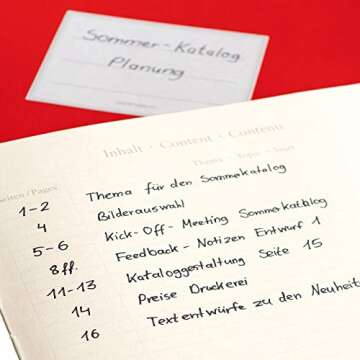 Sommer-Katalog
Planung
Inhalt · Content · Contenu
Seiten/Pages Thema · Topic · Sujet
1-2 Thema für den Sommekatalog
4 Bilderauswahl
5-6 Kick-Off-Meeting Sommerkatalog
8ff. Feedback-Notizen Entwurf 1
11-13 Kataloggestaltung Seite 15
14 Preise Druckerei
16 Textentwürfe zu den Neuheite